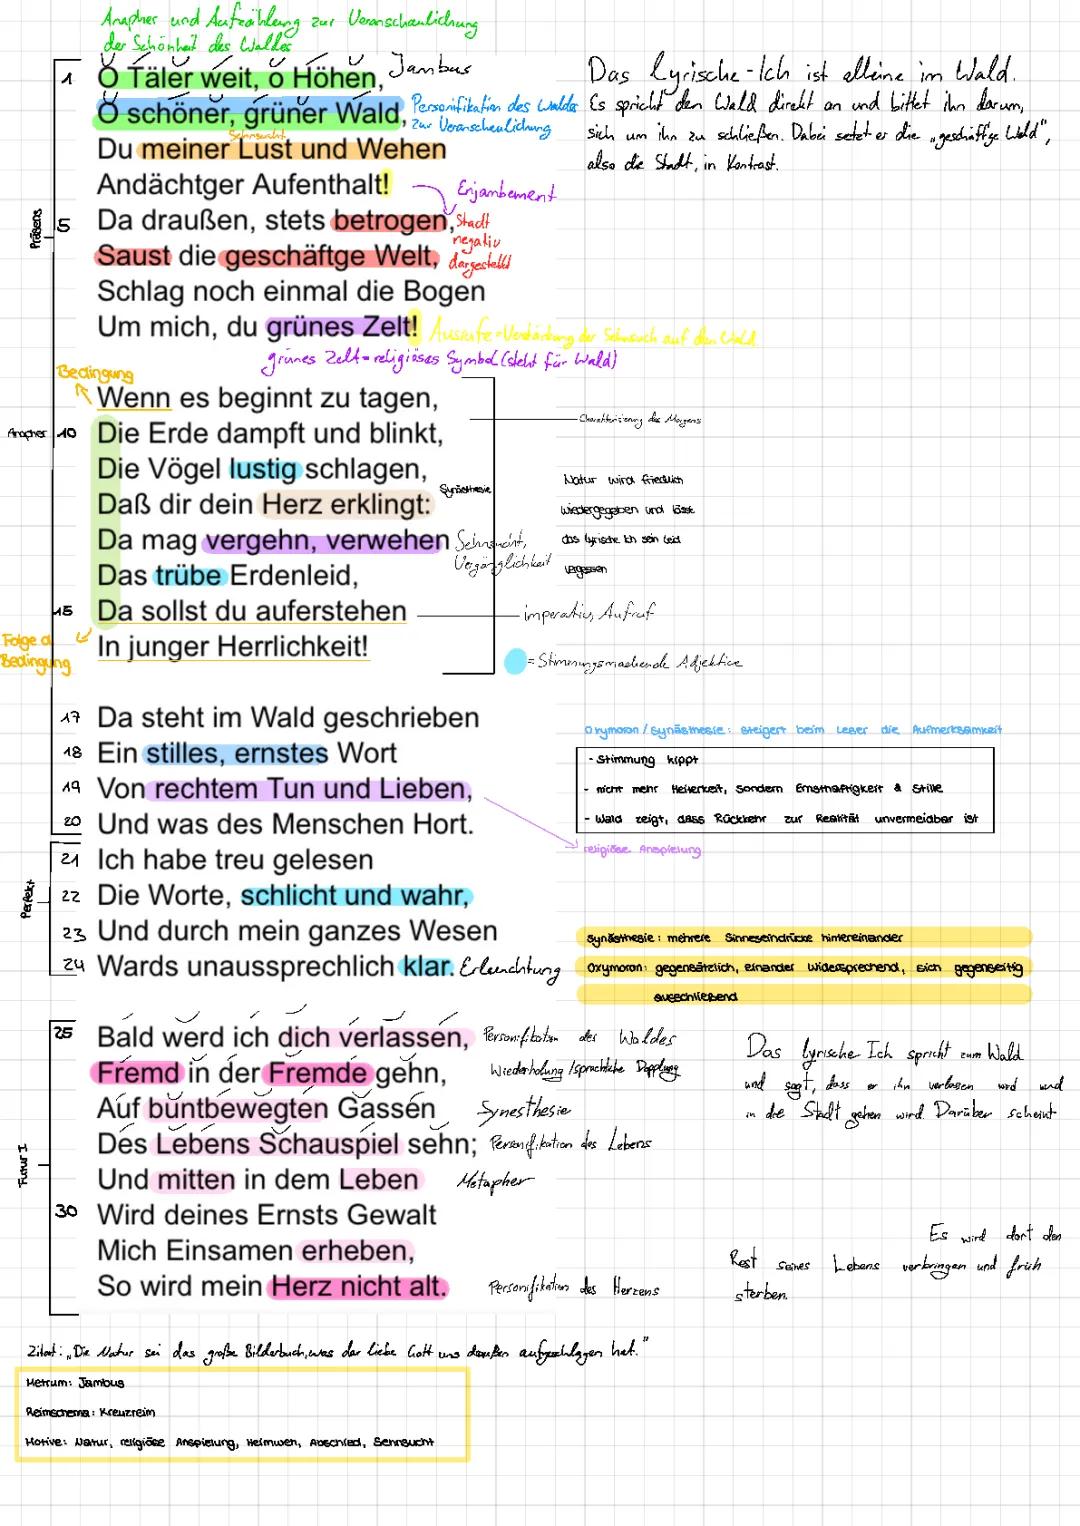 Anapher und Aufzählung zur Veranschaulichung
der Schönheit des Waldes
1 O Täler weit, o Höhen, Jambus
O schöner, grüner Wald, Personifikation des Waldes
zur Veranschaulichung
Sehnsucht
Du meiner Lust und Wehen
Andächtger Aufenthalt!
Enjambement
5 Da draußen, stets betrogen, Stadt
negativ
dargestellt
Saust die geschäftge Welt,
Schlag noch einmal die Bogen
Um mich, du grünes Zelt! Ausrufe=Verstärkung der Sehnsuch auf den Wald
grünes Zelt=religiöses Symbol (steht für Wald)
Präsens
Das Lyrische-Ich ist alleine im Wald.
Es spricht den Wald direkt an und bittet ihn darum,
sich um ihn zu schließen. Dabei setzt er die „geschäftge Welt",
also die Stadt, in Kontrast.
Bedingung
Wenn es beginnt zu tagen,
Anapher 10 Die Erde dampft und blinkt,
Die Vögel lustig schlagen,
Daß dir dein Herz erklingt:
Synästhesie
Da mag vergehn, verwehen Sehnsucht,
Vergänglichkeit
Das trübe Erdenleid,
15 Da sollst du auferstehen imperativ, Aufruf
In junger Herrlichkeit!
Folge d.
Bedingung
= Stimmungsmachende Adjektive
Charakterisierung des Morgens
Natur wird friedlich
wiedergegeben und lässt
das lyrische Ich sein Leid
vergessen
17 Da steht im Wald geschrieben
18 Ein stilles, ernstes Wort
19 Von rechtem Tun und Lieben,
20 Und was des Menschen Hort.
21 Ich habe treu gelesen
22 Die Worte, schlicht und wahr,
23 Und durch mein ganzes Wesen
24 Wards unaussprechlich klar. Erleuchtung
Perfekt
Oxymoron / Synästhesie: steigert beim Leser die Aufmerksamkeit
- Stimmung kippt
- nicht mehr Heiterkeit, sondern Ernsthaftigkeit & Stille
- Wald zeigt, dass Rückkehr zur Realität unvermeidbar ist
religiöse Anspielung
Synästhesie: mehrere Sinneseindrücke hintereinander
Oxymoron: gegensätzlich, einander widersprechend, sich gegenseitig
ausschließend
25 Bald werd ich dich verlassen, Personifikation des Waldes
Fremd in der Fremde gehn, Wiederholung /sprachliche Dopplung
Auf buntbewegten Gassen Synesthesie
Des Lebens Schauspiel sehn; Personifikation des Lebens
Und mitten in dem Leben Metapher
30 Wird deines Ernsts Gewalt
Mich Einsamen erheben,
So wird mein Herz nicht alt. Personifikation des Herzens
Futur I
Das lyrische Ich spricht zum Wald
und sagt, dass er ihn verlassen wird und
in die Stadt gehen wird. Darüber scheint
Es wird dort den
Rest seines Lebens verbringen und früh
sterben.
Zitat: „Die Natur sei das große Bilderbuch, was der liebe Gott uns draußen aufgeschlagen hat."
Metrum: Jambus
Reimschema: Kreuzreim
Motive: Natur, religiöse Anspielung, Heimweh, Abschied, Sehnsucht